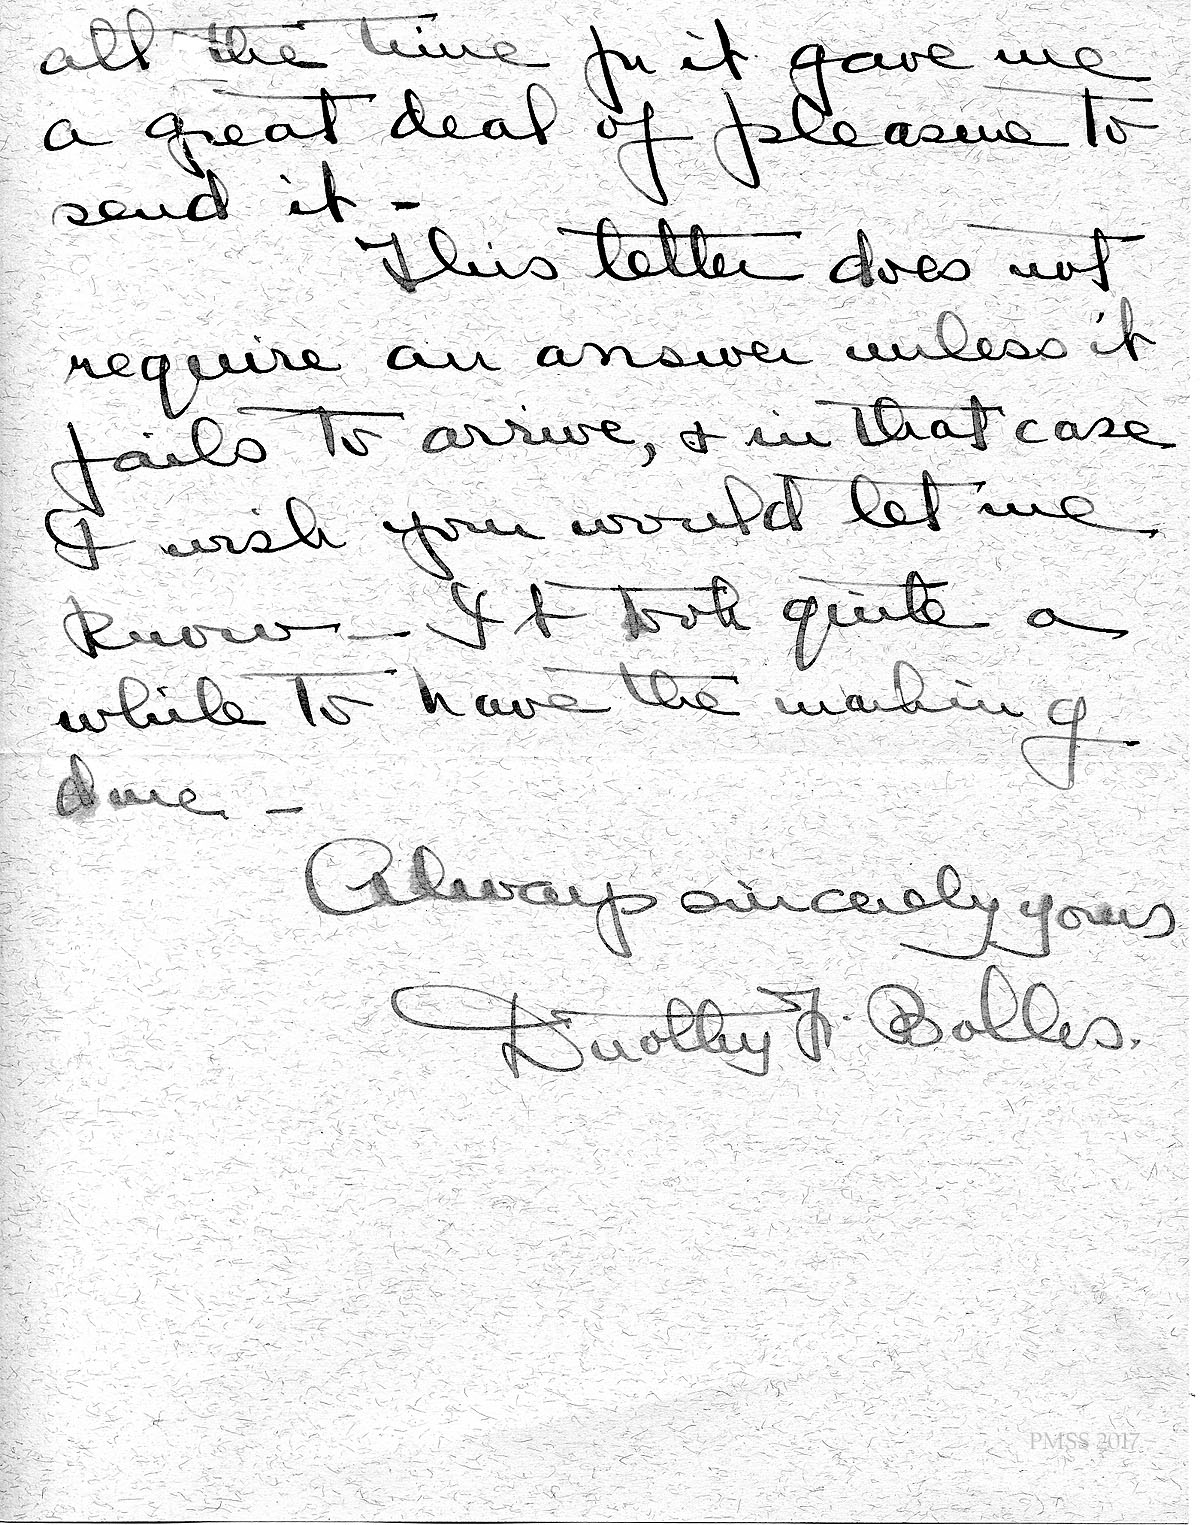 all the time for it gave me
a great deal of pleasure to
send it -
This letter does not
require an answer unless it
fails to arrive, & in that case
I wish you would let me
know - It took quite a
while to have the making
done. -
Always sincerely yours
Dorothy F. Bolles.
PMSS 2017